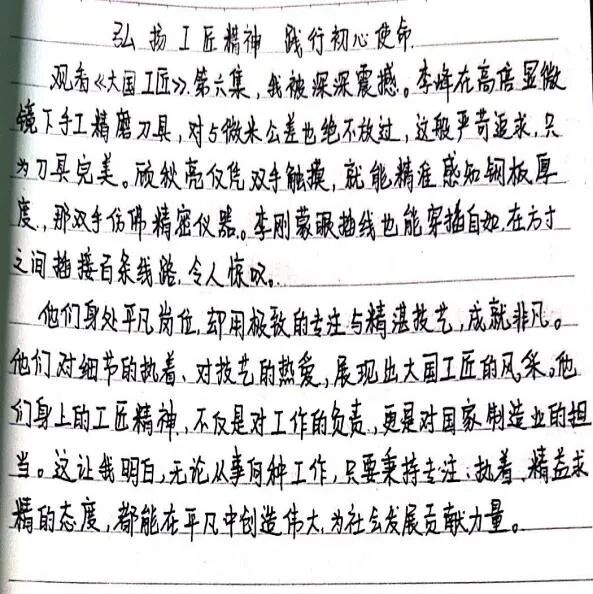 弘扬工匠精神 践行初心使命.
观看《大国工匠》.第六集,我被深深震撼。李峰在高倍显微
镜下手工精磨刀具,对5微米公差也绝不放过,这般严苛追求,只
为刀具完美。顾秋亮仅凭双手触摸,就能精准感知钢板厚
度,那双手仿佛精密仪器。李刚蒙眼插线也能穿插自如,在方寸
之间插接百条线路,令人惊叹。
他们身处平凡岗位,却用极致的专注与精湛技艺,成就非凡。
他们对细节的执着、对技艺的热爱,展现出大国工匠的风采。他
们身上的工匠精神,不仅是对工作的负责,更是对国家制造业的担
当。这让我明白,无论从事何种工作,只要秉持专注、执着、精益求
精的态度,都能在平凡中创造伟大,为社会发展贡献力量。